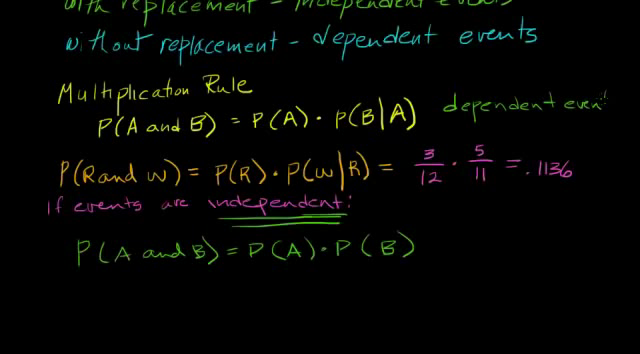 with replacement - independent events
without replacement - dependent events
Multiplication Rule
P(A and B) = P(A) · P(B|A) dependent event
P(R and W) = P(R) · P(W|R) = 3/12 · 5/11 = .1136
If events are independent:
P(A and B) = P(A) · P(B)